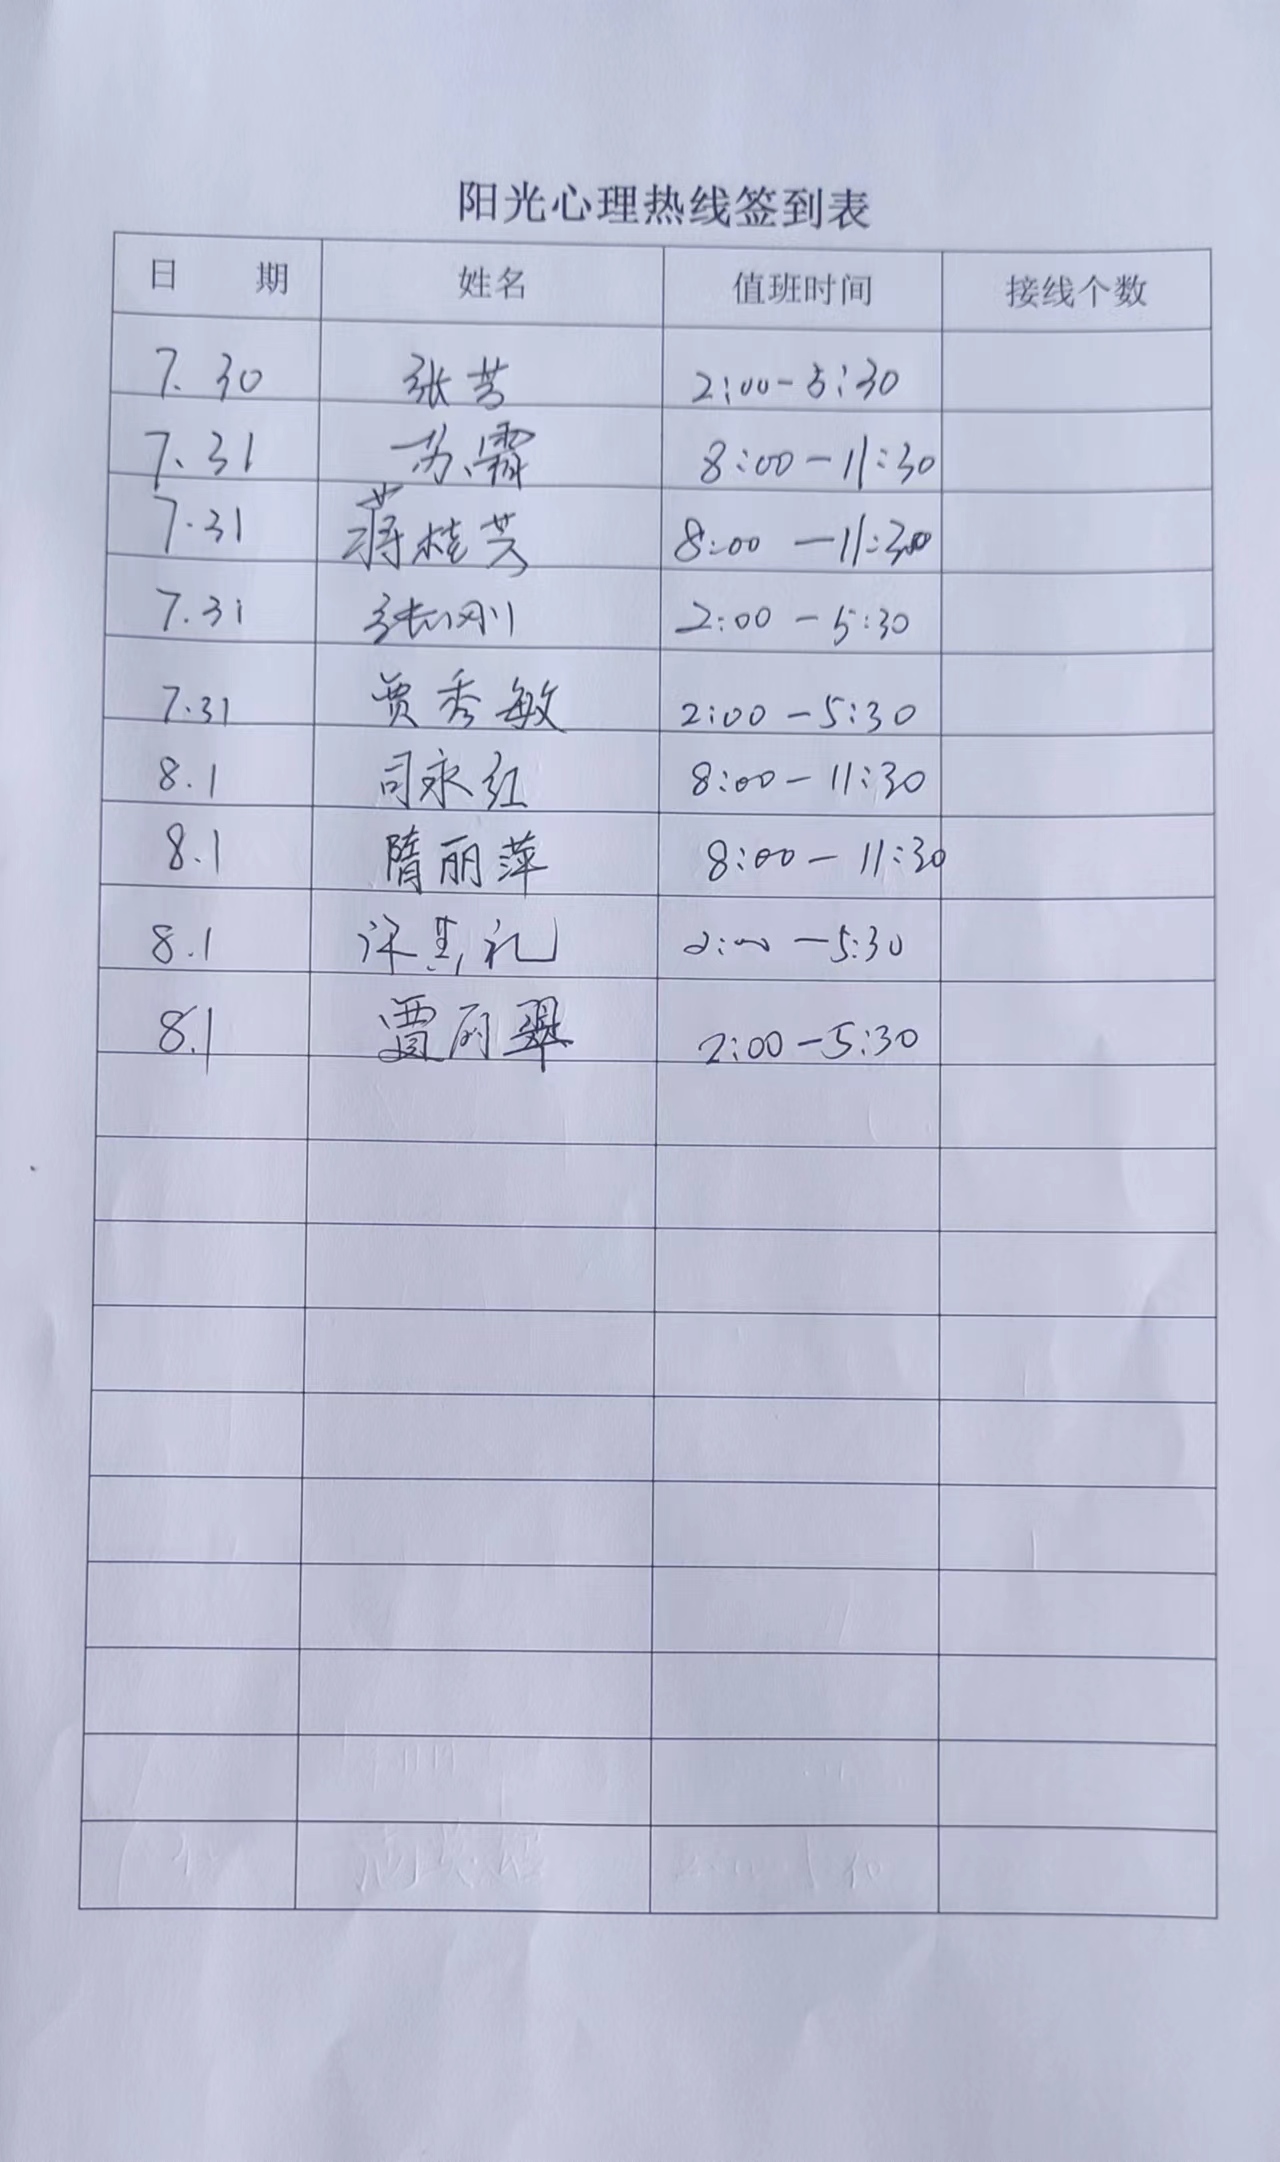 阳光心理热线签到表
日 期 姓名 值班时间 接线个数
7.30 张芳 2:00-5:30
7.31 苏霞 8:00-11:30
7.31 蒋桂芳 8:00-11:30
7.31 张刚 2:00-5:30
7.31 贾秀敏 2:00-5:30
8.1 司永红 8:00-11:30
8.1 隋丽萍 8:00-11:30
8.1 2:00-5:30
8.1 贾丽翠 2:00-5:30